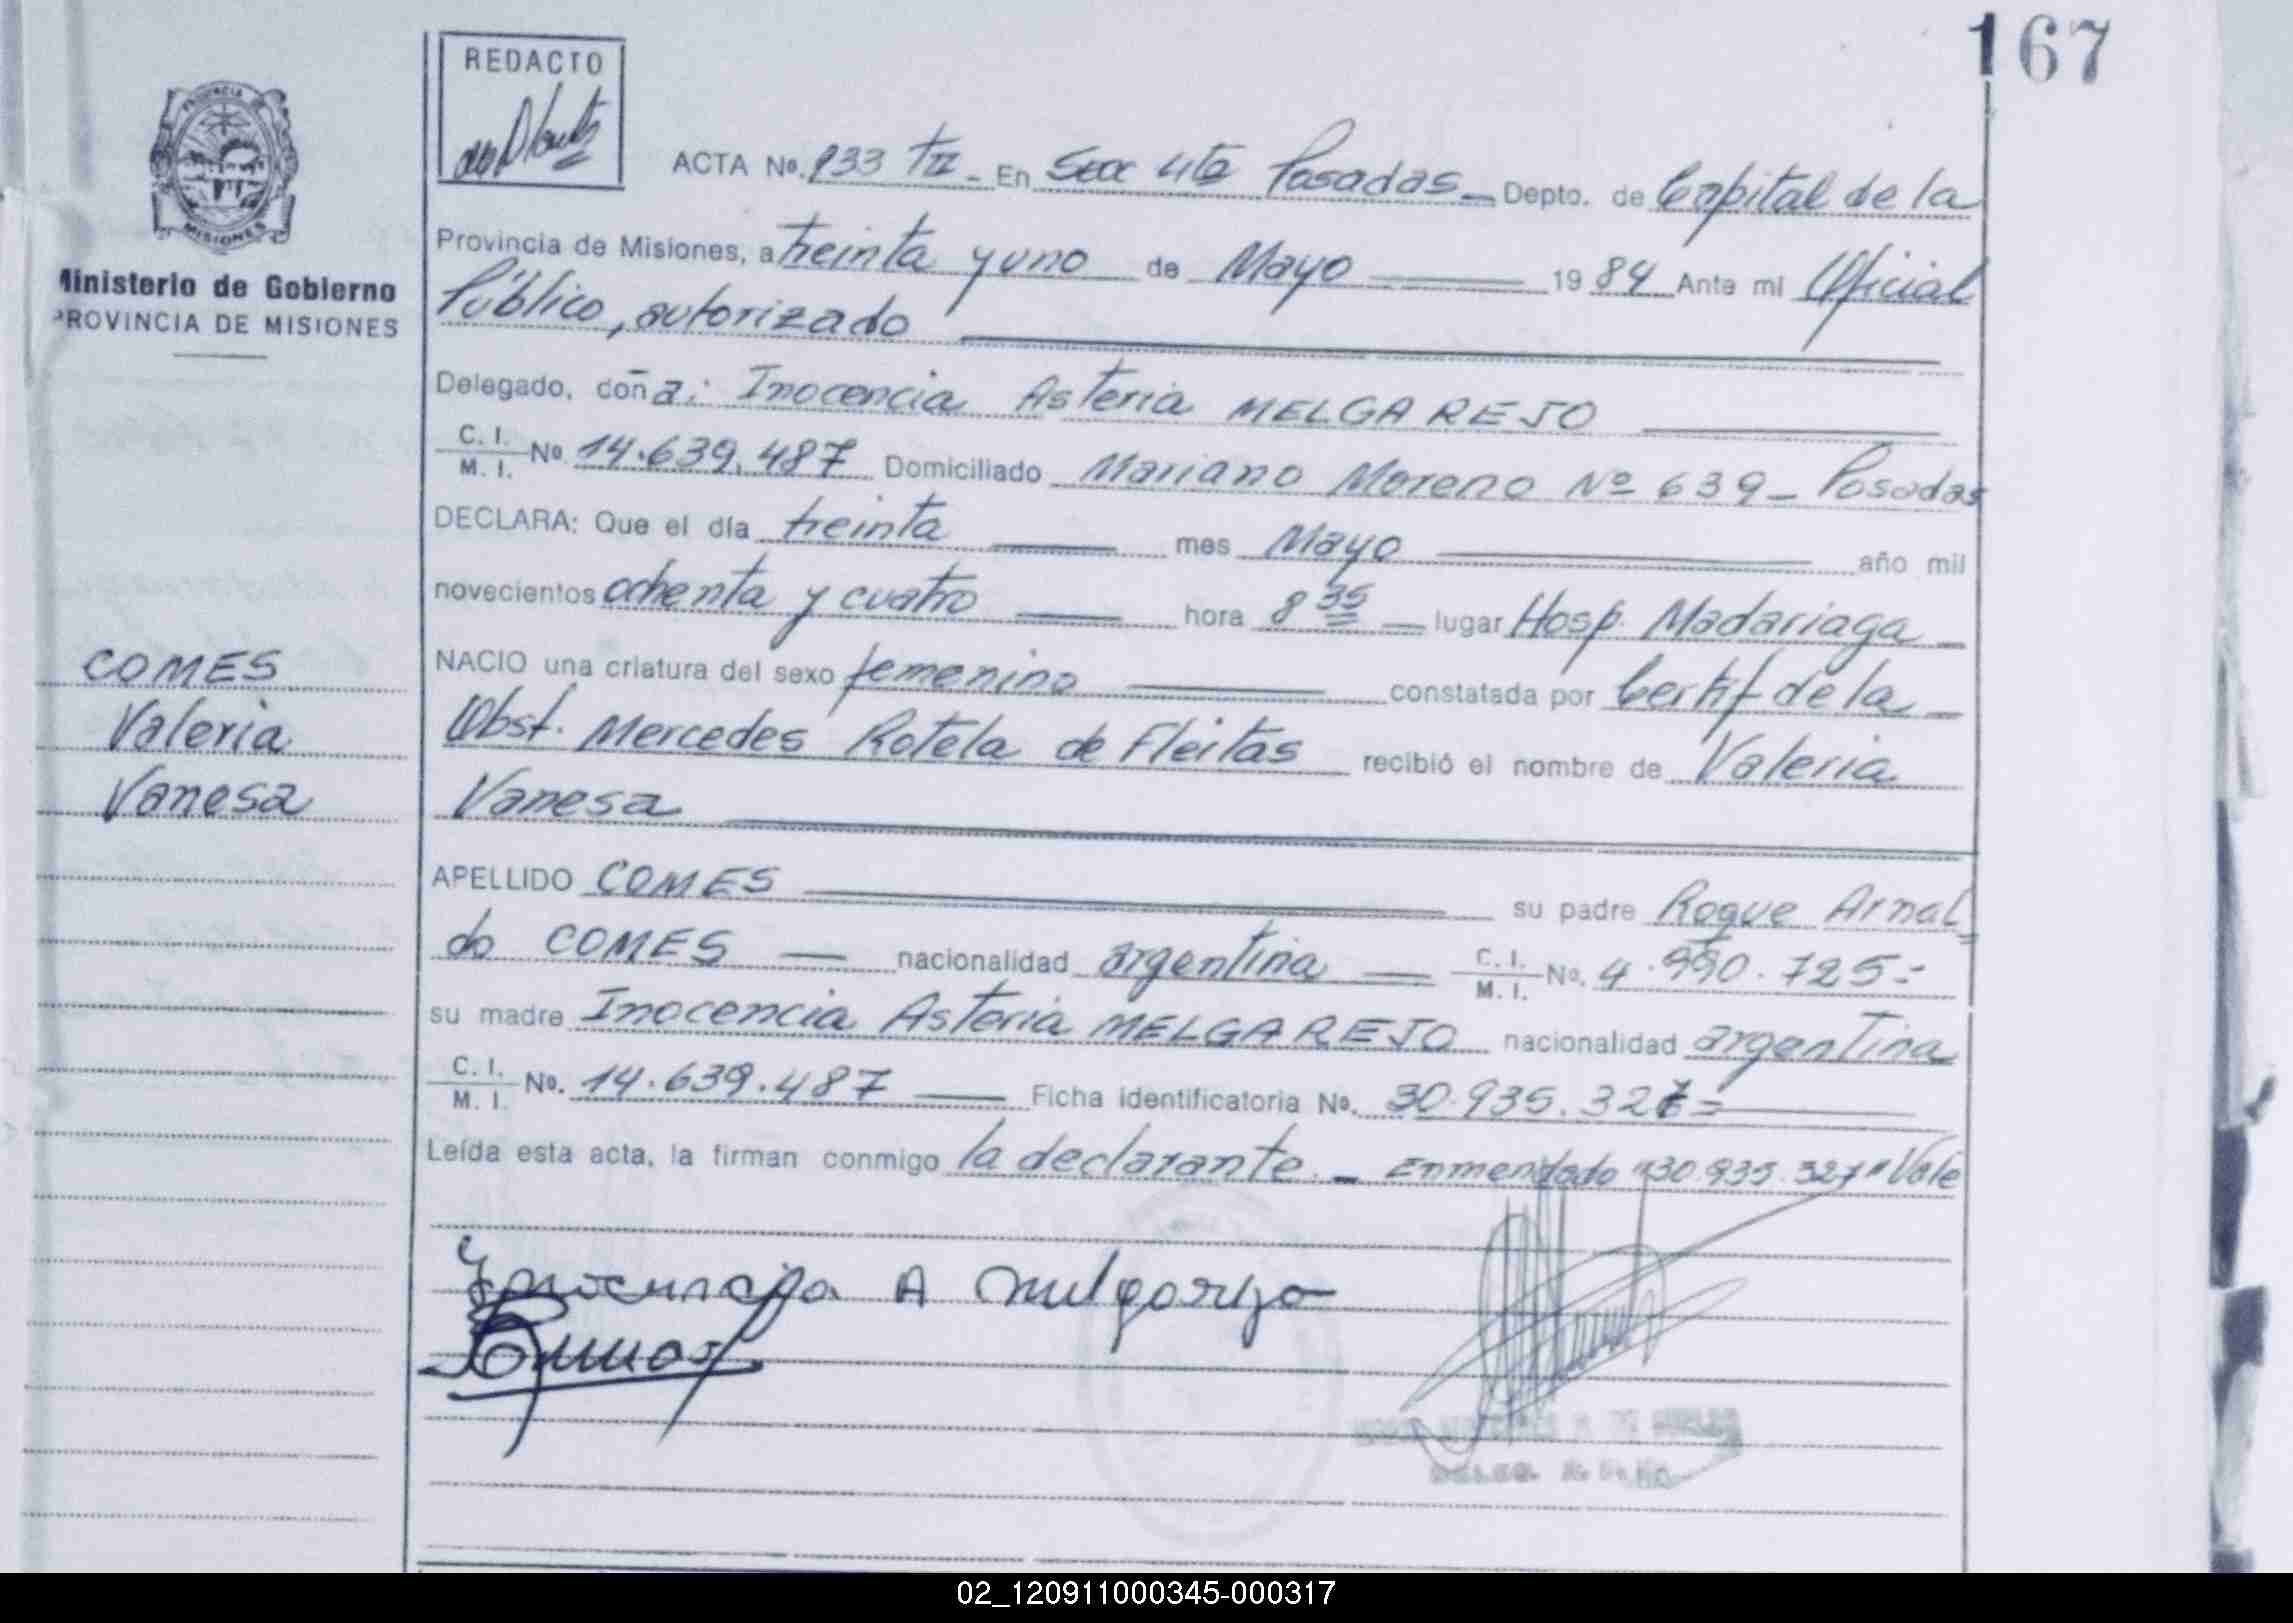 167
REDACTO
PROVINCIA DE
MISIONES
Ministerio de Gobierno
PROVINCIA DE MISIONES
ACTA Nº. 933 TII - En Secc 4ta Posadas - Depto. de Capital de la
Provincia de Misiones, a treinta y uno de Mayo 1984 Ante mi Oficial
Público, autorizado
Delegado, doña: Inocencia Asteria MELGAREJO
C. I. M. I. Nº 14.639.487 Domiciliado Mariano Moreno Nº 639 - Posadas
DECLARA: Que el día treinta mes Mayo año mil
novecientos ochenta y cuatro hora 8 35 lugar Hosp. Madariaga -
NACIO una criatura del sexo femenino constatada por Certif de la -
Obst. Mercedes Rotela de Fleitas recibió el nombre de Valeria
Vanesa
COMES
Valeria
Vanesa
APELLIDO COMES su padre Roque Arnal=
do COMES nacionalidad argentina C. I. M. I. Nº. 4.990.725=
su madre Inocencia Asteria MELGAREJO nacionalidad argentina
C. I. M. I. Nº. 14.639.487 Ficha identificatoria Nº. 30.935.327=
Leída esta acta, la firman conmigo la declarante. - Enmendado "30.935.327" Vale
Inocencia A Melgarejo
02_120911000345-000317